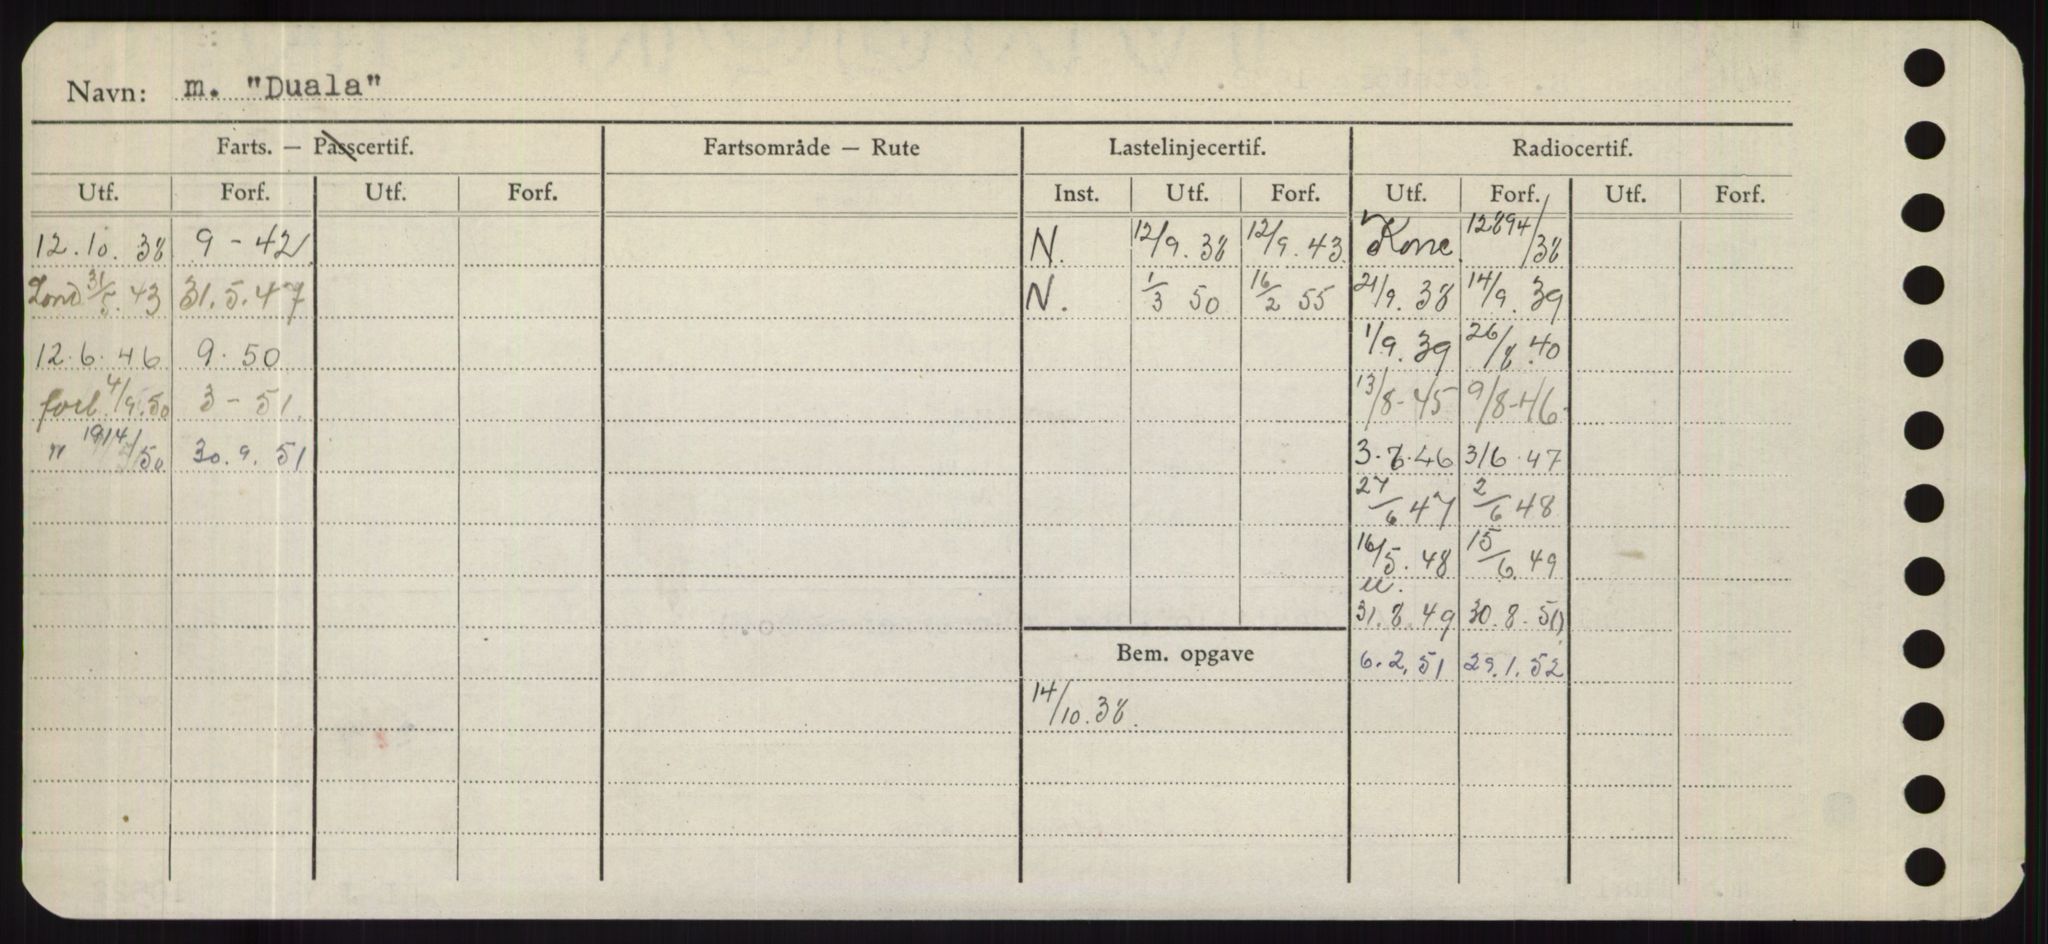 Navn: m. "Duala"
Farts. — Passcertif. Fartsområde — Rute Lastelinjecertif. Radiocertif.
Utf. Forf. Utf. Forf. Inst. Utf. Forf. Utf. Forf. Utf. Forf.
12.10.38 9-42 N. 12/9.38 12/9.43 12894/38
Lond 31/5.43 31.5.47 N. 1/3 50 16/2 55 21/9.38 14/9.39
12.6.46 9.50 1/9.39 26/8.40
forl. 4/9.50 3-51. 13/8-45 9/8-46
" 30.9.51 3.7.46 3/6.47
27/6 47 2/6 48
16/5.48 15/6.49
31.8.49 30.8.50
Bem. opgave 6.2.51 29.1.52
14/10.38.